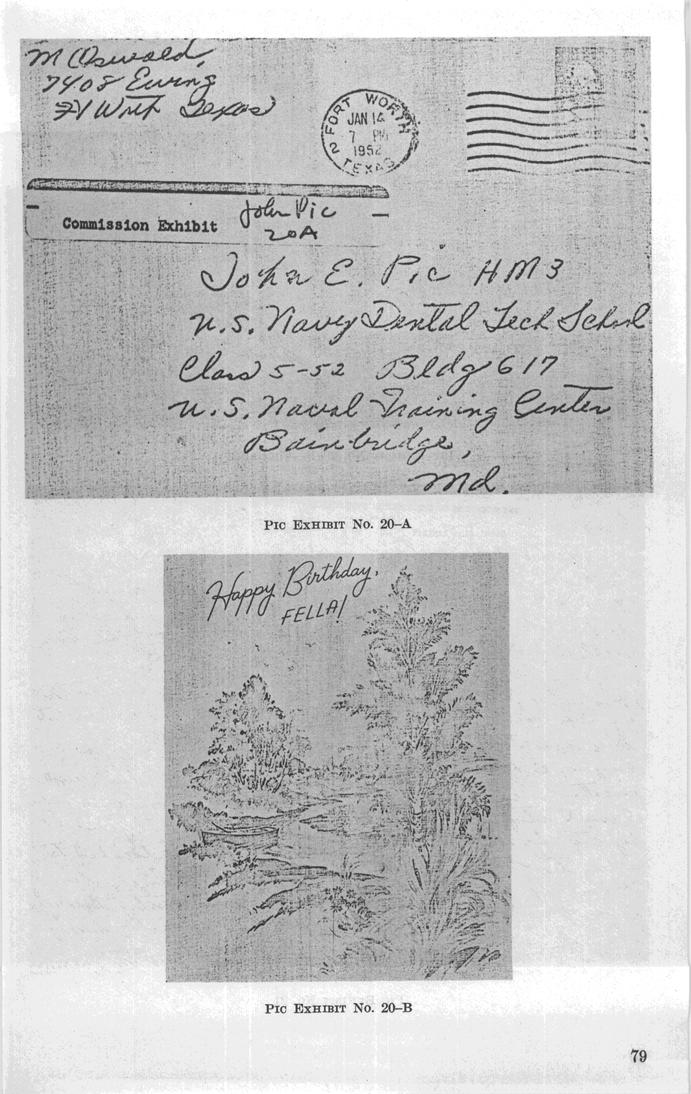 M Oswald,
7408 Ewing
Ft Wrth Texas
FORT WORTH
JAN 14
7 PM
1952
2 TEXAS
Commission Exhibit John Pic
20A
John E. Pic HM3
U.S. Navy Dental Tech School
Class 5-52 Bldg 617
U.S. Naval Training Center
Bainbridge,
Md.
PIC EXHIBIT NO. 20–A
Happy Birthday,
FELLA!
PIC EXHIBIT NO. 20–B
79